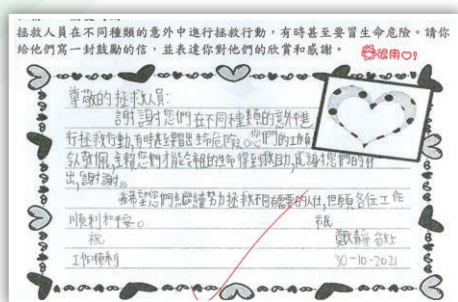 拯救人員在不同種類的意外中進行拯救行動，有時甚至要冒生命危險。請你
給他們寫一封鼓勵的信，並表達你對他們的欣賞和感謝。
很用心!
尊敬的拯救人員:
謝謝您們在不同種類的意外中進
行拯救行動,有時甚至冒出生命危險。您們的工作
令人敬佩,全賴您們才能令 的生命得到救助,感謝您們的付
出,謝謝。
希望您們繼續努力拯救不同需要的人仕,但願各位工作
順利和平安。
祝
祝
工作順利
敬上
30-10-2021